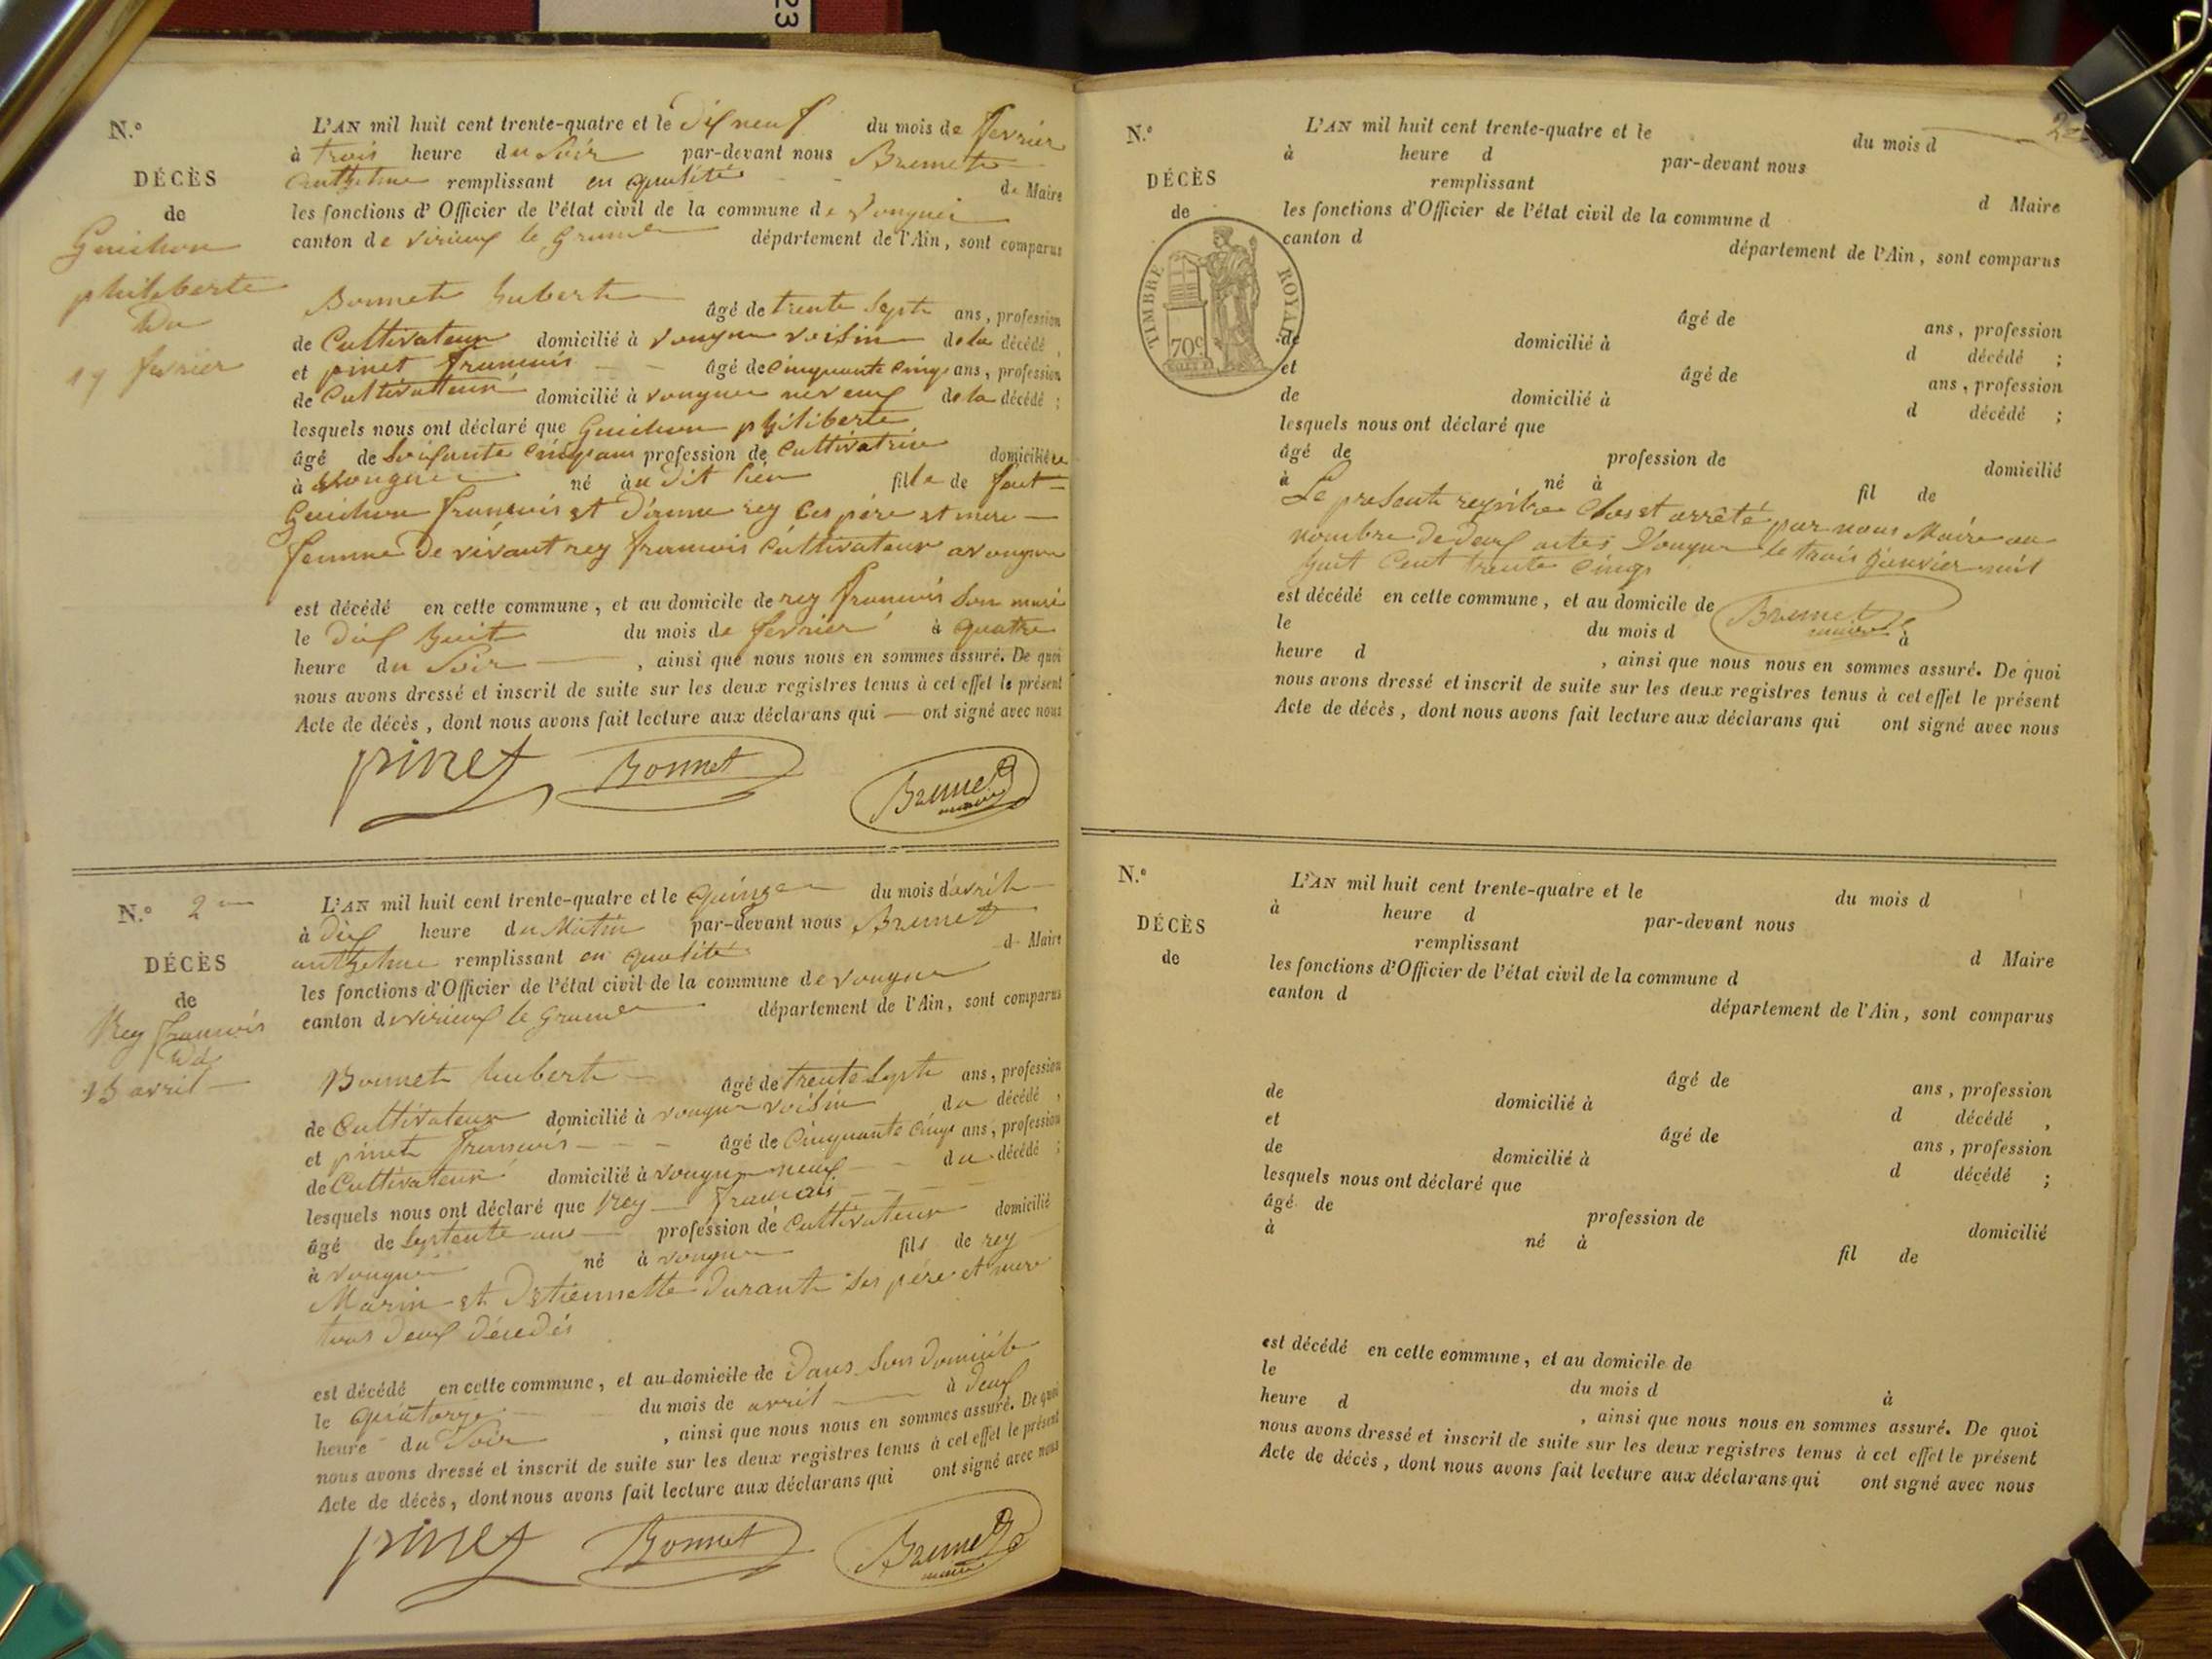 23
N.o
DÉCÈS
de
Guichon
philiberte
Du
19 fevrier
L'AN mil huit cent trente-quatre et le dix neuf du mois de fevrier
à trois heure du Soir par-devant nous Brunet
anthelme remplissant en qualité de Maire
les fonctions d'Officier de l'état civil de la commune de Vongne
canton de virieux le Grand département de l'Ain, sont comparus
Bonnet hubert âgé de trente Sept ans, profession
de Cultivateur domicilié à vongne voisin de la décédé,
et pinet francois âgé de Cinquante Cinq ans, profession
de Cultivateur domicilié à vongne neveux de la décédé ;
lesquels nous ont déclaré que Guichon philiberte
âgé de Soixante Cinq ans profession de Cultivatrice domiciliée
à Vongne né au dit lieu fille de fout
Guichon francois et rey Ses père et mere
femme De vivant rey francois Cultivateur a vongne
est décédé en cette commune, et au domicile de rey francois Son mari
le Dix huit du mois de fevrier à quatre
heure du Soir , ainsi que nous nous en sommes assuré. De quoi
nous avons dressé et inscrit de suite sur les deux registres tenus à cet effet le présent
Acte de décès, dont nous avons fait lecture aux déclarans qui ont signé avec nous
pinet Bonnet Brunet maire
N.o 2me
DÉCÈS
de
Rey francois
Du
15 avril
L'AN mil huit cent trente-quatre et le Quinze du mois d'avril
à Dix heure du Matin par-devant nous Brunet
anthelme remplissant en qualité de Maire
les fonctions d'Officier de l'état civil de la commune de vongne
canton de virieux le Grand département de l'Ain, sont comparus
Bonnet hubert âgé de trente Sept ans, profession
de Cultivateur domicilié à vongne voisin du décédé,
et pinet francois âgé de Cinquante Cinq ans, profession
de Cultivateur domicilié à vongne neveux du décédé ;
lesquels nous ont déclaré que Rey francois
âgé de Septente ans profession de Cultivateur domicilié
à vongne né à vongne fils de rey
Marin et Detiennette Durant Ses père et mere
tous deux décédés
est décédé en cette commune, et au domicile de Dans Son Domicile
le Quatorze du mois de avril à Deux
heure du Soir , ainsi que nous nous en sommes assuré. De quoi
nous avons dressé et inscrit de suite sur les deux registres tenus à cet effet le présent
Acte de décès, dont nous avons fait lecture aux déclarans qui ont signé avec nous
pinet Bonnet Brunet maire
2
N.o
DÉCÈS
de
TIMBRE ROYAL
70c
L'AN mil huit cent trente-quatre et le du mois d
à heure d par-devant nous
remplissant d Maire
les fonctions d'Officier de l'état civil de la commune d
canton d département de l'Ain, sont comparus
âgé de ans, profession
de domicilié à d décédé ;
et âgé de ans, profession
de domicilié à d décédé ;
lesquels nous ont déclaré que
âgé de profession de domicilié
à né à fil de
Le present registre Clos et arrêté par nous Maire au
nombre de deux actes Vongne le trois Janvier mil
huit Cent trente Cinq
est décédé en cette commune, et au domicile de
Brunet maire
le du mois d à
heure d , ainsi que nous nous en sommes assuré. De quoi
nous avons dressé et inscrit de suite sur les deux registres tenus à cet effet le présent
Acte de décès, dont nous avons fait lecture aux déclarans qui ont signé avec nous
N.o
DÉCÈS
de
L'AN mil huit cent trente-quatre et le du mois d
à heure d par-devant nous
remplissant d Maire
les fonctions d'Officier de l'état civil de la commune d
canton d département de l'Ain, sont comparus
âgé de ans, profession
de domicilié à d décédé ,
et âgé de ans, profession
de domicilié à d décédé ;
lesquels nous ont déclaré que
âgé de profession de domicilié
à né à fil de
est décédé en cette commune, et au domicile de
le du mois d à
heure d , ainsi que nous nous en sommes assuré. De quoi
nous avons dressé et inscrit de suite sur les deux registres tenus à cet effet le présent
Acte de décès, dont nous avons fait lecture aux déclarans qui ont signé avec nous